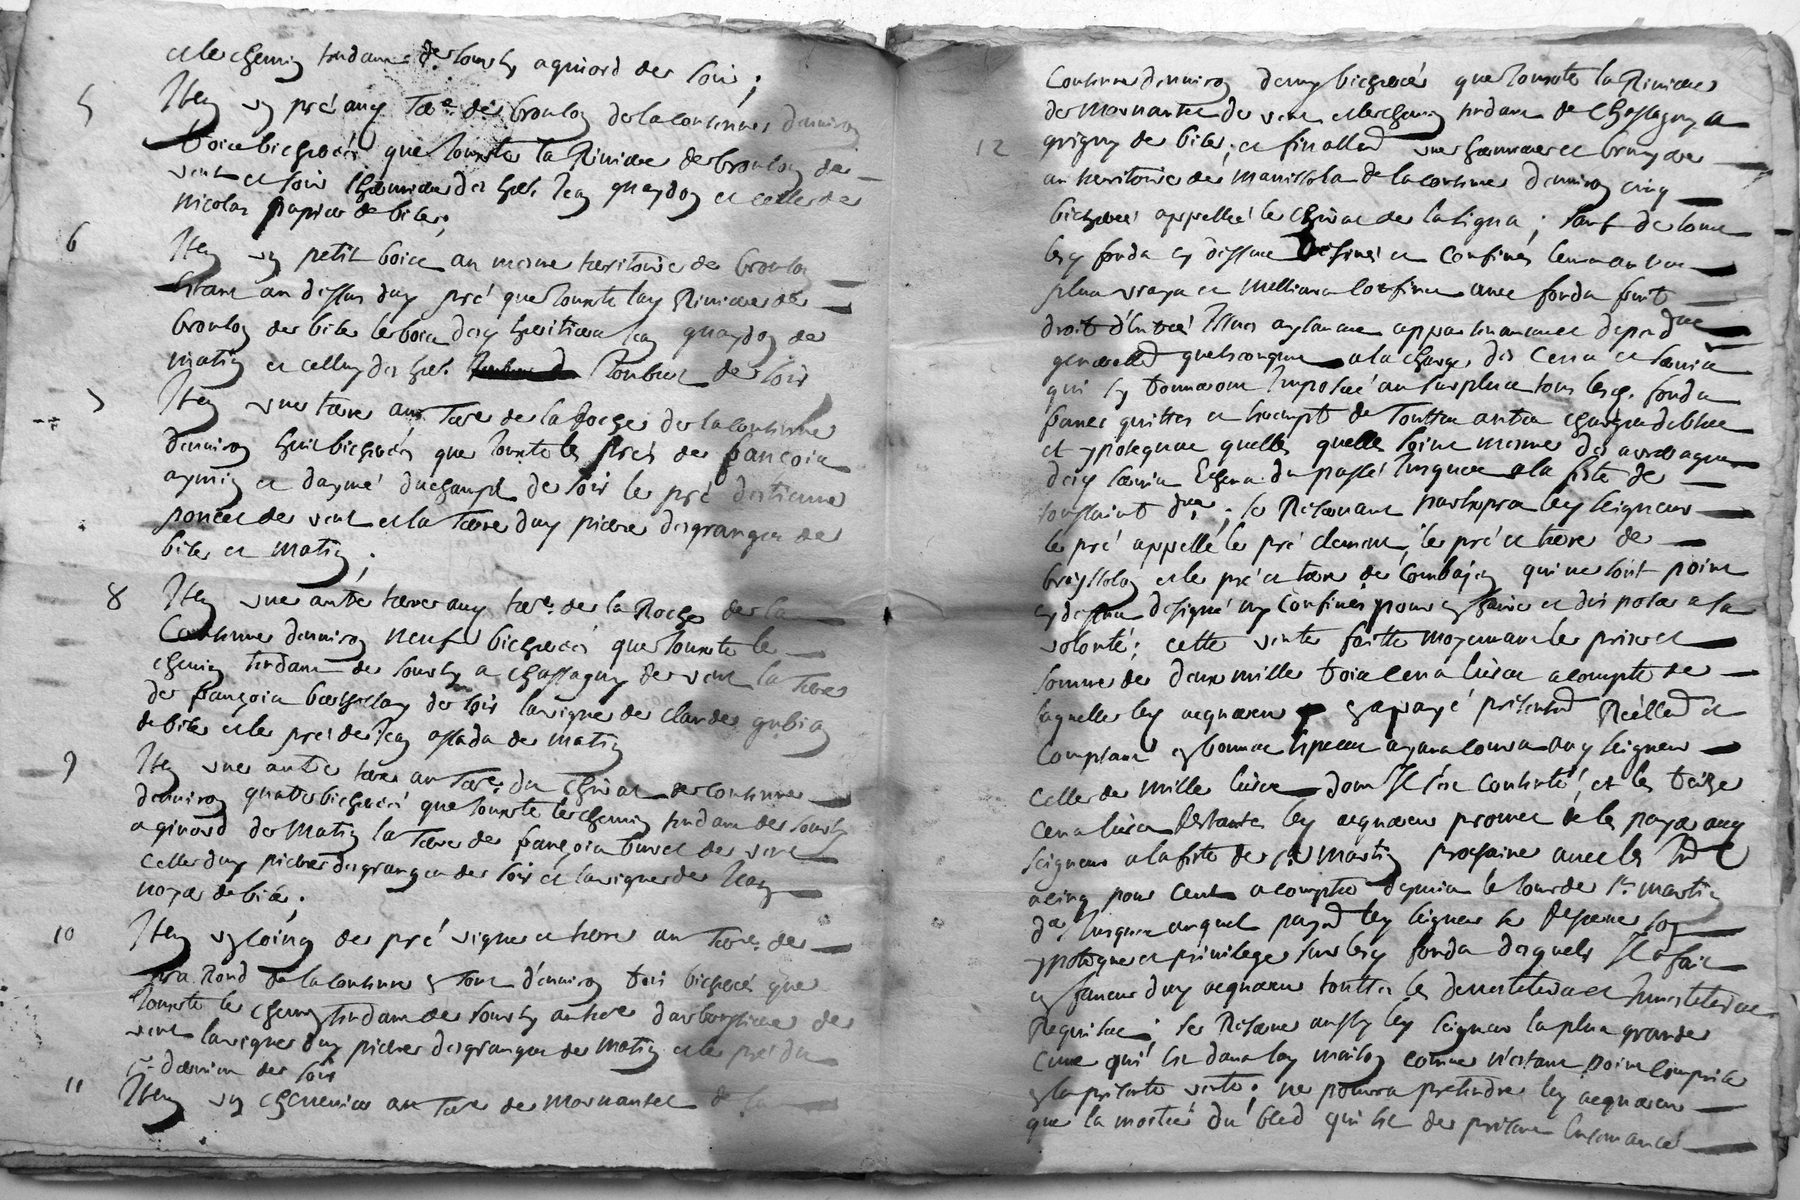 et le chemin tendant de Sourzy a grivord de soir ;
5
Item un pré aux Terre de broulon de la contenue d'environ
trois bicherées que jouxte la Riviere de broulon de
vent et soir chenevier des her. Jean guaydon et celle de
nicolas papier de bize ;
6
Item un petit bois au mesme territoire de broulon
estant au dessus du pré que jouxte la Riviere de
broulon de bize le bois desd heritiers Jean guaydon de
matin et celluy des her. de soir
7
Item une terre au Terre de la Roche de la contenue
denviron huit bicherées que jouxte les prés de françois
et daymé duchamp de soir le pré d'estienne
poncet de vent et la Terre dud pierre desgranges de
bize et matin ;
8
Item une autre terre aud terre de la Roche de la
Contenue denviron neuf bicherées que jouxte le
chemin tendant de Sourzy a chassagny de vent la Terre
de françois berthollay de soir la vigne de claude gubian
de bize et le pré de Jean de matin
9
Item une autre terre au Terre du Chirat de contenue
denviron quatre bicherées que jouxte le chemin tendant de Sourzy
a givord de Matin la Terre de françois de vent
celle dud pierre desgranges de soir et la vigne de Jean
noyer de bize ;
10
Item un de pré vigne et terre au Terre de
pra Rond de la contenue en tout d'environ trois bicherées que
jouxte le chemin tendant de Sourzy de
vent la vigne dud pierre desgranges de Matin et le pré du
de soir
11
Item un chenevier au Terre de Mornantet de la
contenue denviron demy bicherée que jouxte la Riviere
de Mornantet de vent et le chemin tendant de Chassagny a
grigny de bize ; et finallement
12
une et bruyere
au territoire de manissola de la contenue denviron cinq
bicherées appellée le Chirat de la ligna ; sauf de tous
lesd fonds cy dessus désignés et confinés
plus vrays et meilleurs confins avec fonds fruit
droit d'entrée Issues aysances appartenances et dependces
generallemt quelsconques a la charge des Cens et servis
qui sy trouveront Imposés au surplus tous lesd. fonds
francs quittes et exempts de toutes autres charges debtes
et ypoteques quelles quelle soint mesme des arrerages
desd servis Echeus du passé Jusques a la feste de
toussaint dre ; se Reservant lesd seigneurs
le pré appellé le pré clement, le pré et terre de
broyssolon et le pré et terre de Combajon qui ne sont point
cy dessus designé ny confinés pour en faire et disposer a sa
volonté ; cette vente faitte moyennant le prix et
somme de deux mille trois cens livres a compte de
laquelle led acquereur a payé presentemt Réellemt et
Comptant en bonnes especes ayant cours aud seigneur
celle de mille livres dont Il s'est contenté, et les treize
cens livres Restantes led acquereur promet de les payer aud
seigneur a la feste de st Martin prochaine avec les
a cinq pour cent a compter depuis le jour de st martin
der Jusques auquel payemt led seigneur se Reserve son
ypoteque et privilege sur lesd fonds desquels Il a fait
en faveur dud acquereur toutes les devestitures et Investitures
Requises ; se Reserve aussy led seigneur la plus grande
cuve qui est dans lad maison comme n'estant point comprise
en la presente vente ; ne pourra pretendre led acquereur
que la moitié du bled qui est de presant ensemancé